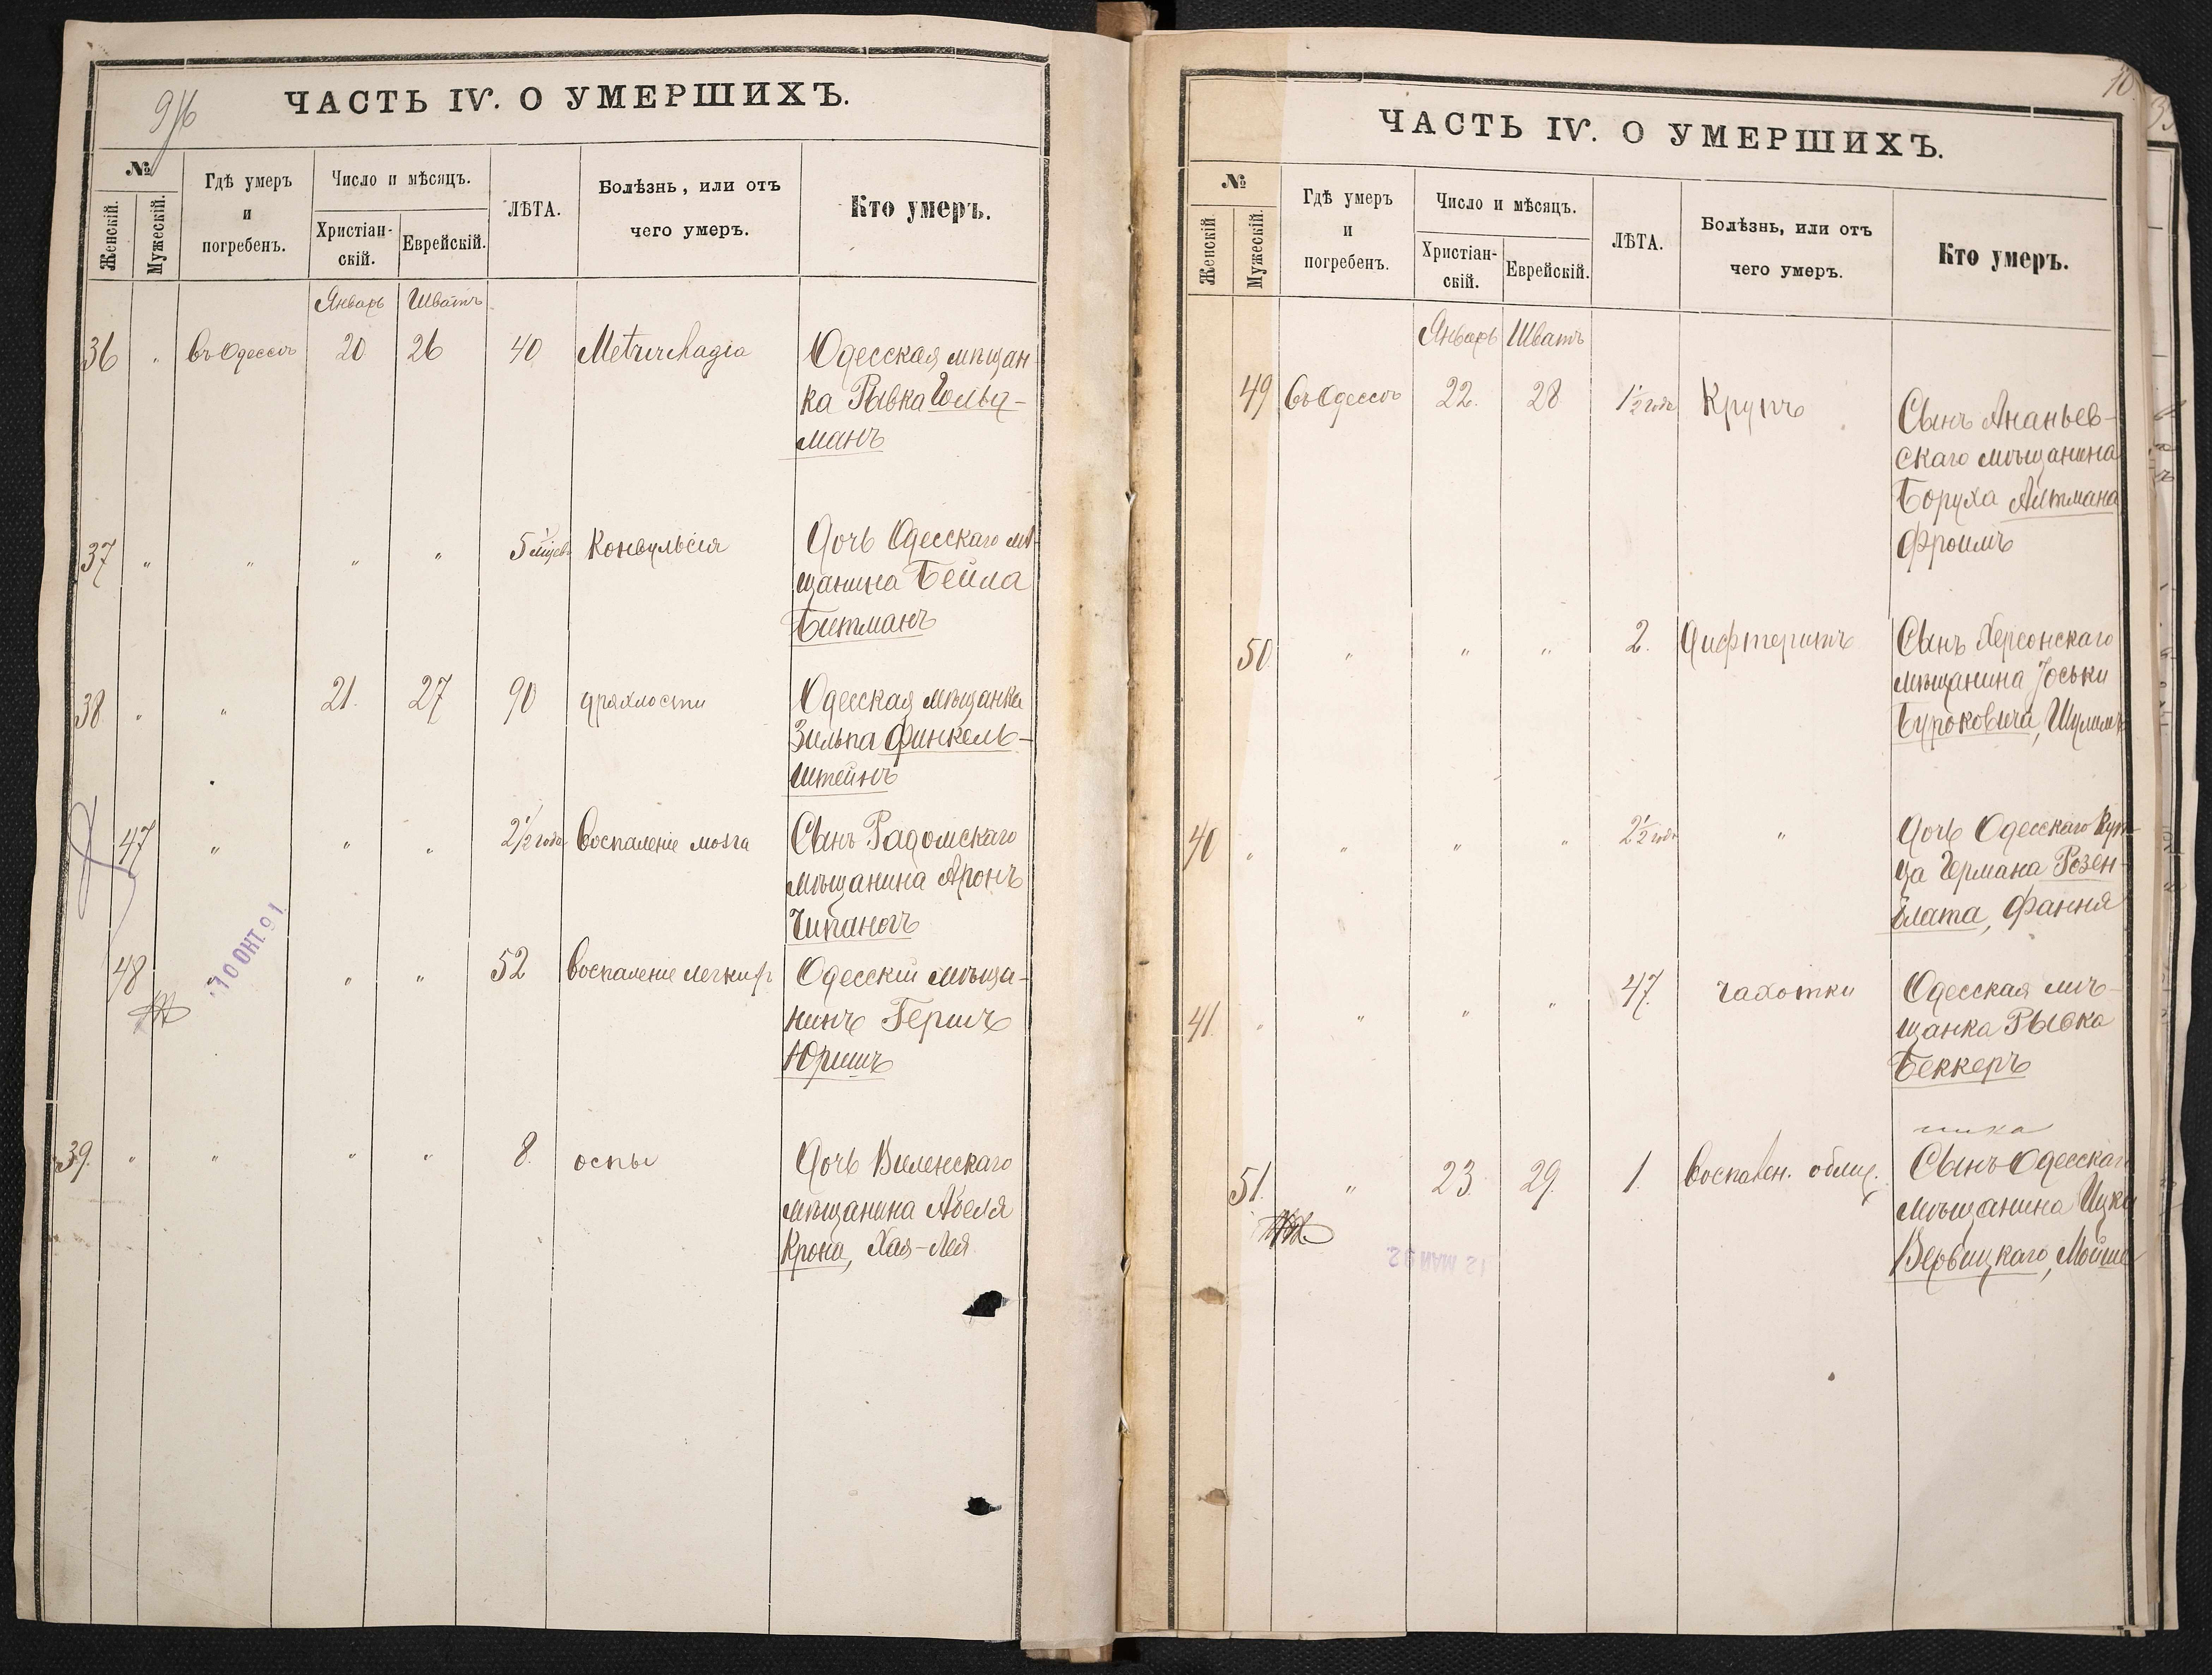 9/16
ЧАСТЬ IV. О УМЕРШИХЪ.
№
Женскій.
Мужескій.
Гдѣ умеръ
и
погребенъ.
Число и мѣсяцъ.
Христіан-
скій.
Еврейскій.
ЛѢТА.
Болѣзнь, или отъ
чего умеръ.
Кто умеръ.
Январь Шватъ
36 „ въ Одессѣ 20 26 40 Одесская мѣщан-
ка Рывка Гольд-
манъ
37 „ „ „ „ 5 Конвульсія Дочь Одесскаго мѣ-
щанина Бейла
Битманъ
38 „ „ 21. 27 90 дряхлости Одесская мѣщанка
Зильпа Финкель-
штейнъ
47 „ „ „ 2½ года воспаленіе мозга Сынъ Радомскаго
мѣщанина Аронъ
48 „ „ „ 52 воспаленіе легкихъ Одесскій мѣща-
нинъ Гершъ
Юришъ
10 ОКТ. 91
39. „ „ „ „ 8. оспы Дочь Виленскаго
мѣщанина Абеля
Крона, Хая-Лея
10
ЧАСТЬ IV. О УМЕРШИХЪ.
№
Женскій
Мужескій.
Гдѣ умеръ
и
погребенъ.
Число и мѣсяцъ.
Христіан-
скій.
Еврейскій.
ЛѢТА.
Болѣзнь, или отъ
чего умеръ.
Кто умеръ.
Январь Шватъ
49 въ Одессѣ 22. 28 1½ года Крупъ Сынъ Ананьев-
скаго мѣщанина
Боруха Алтмана
Фроимъ
50. „ „ „ 2. Дифтеритъ Сынъ Херсонскаго
мѣщанина Іоськи
Бурковича, Шулимъ
40 „ „ „ „ 2½ года „ Дочь Одесскаго Куп-
ца Германа Розен-
блата, Фання
41. „ „ „ „ 47. чахотки Одесская мѣ-
щанка Рывка
Беккеръ
51. „ 23. 29. 1. Воспален. Сынъ Одесскаго
мѣщанина Ицка
Вербицкаго, Мойше
12 МАЙ 92